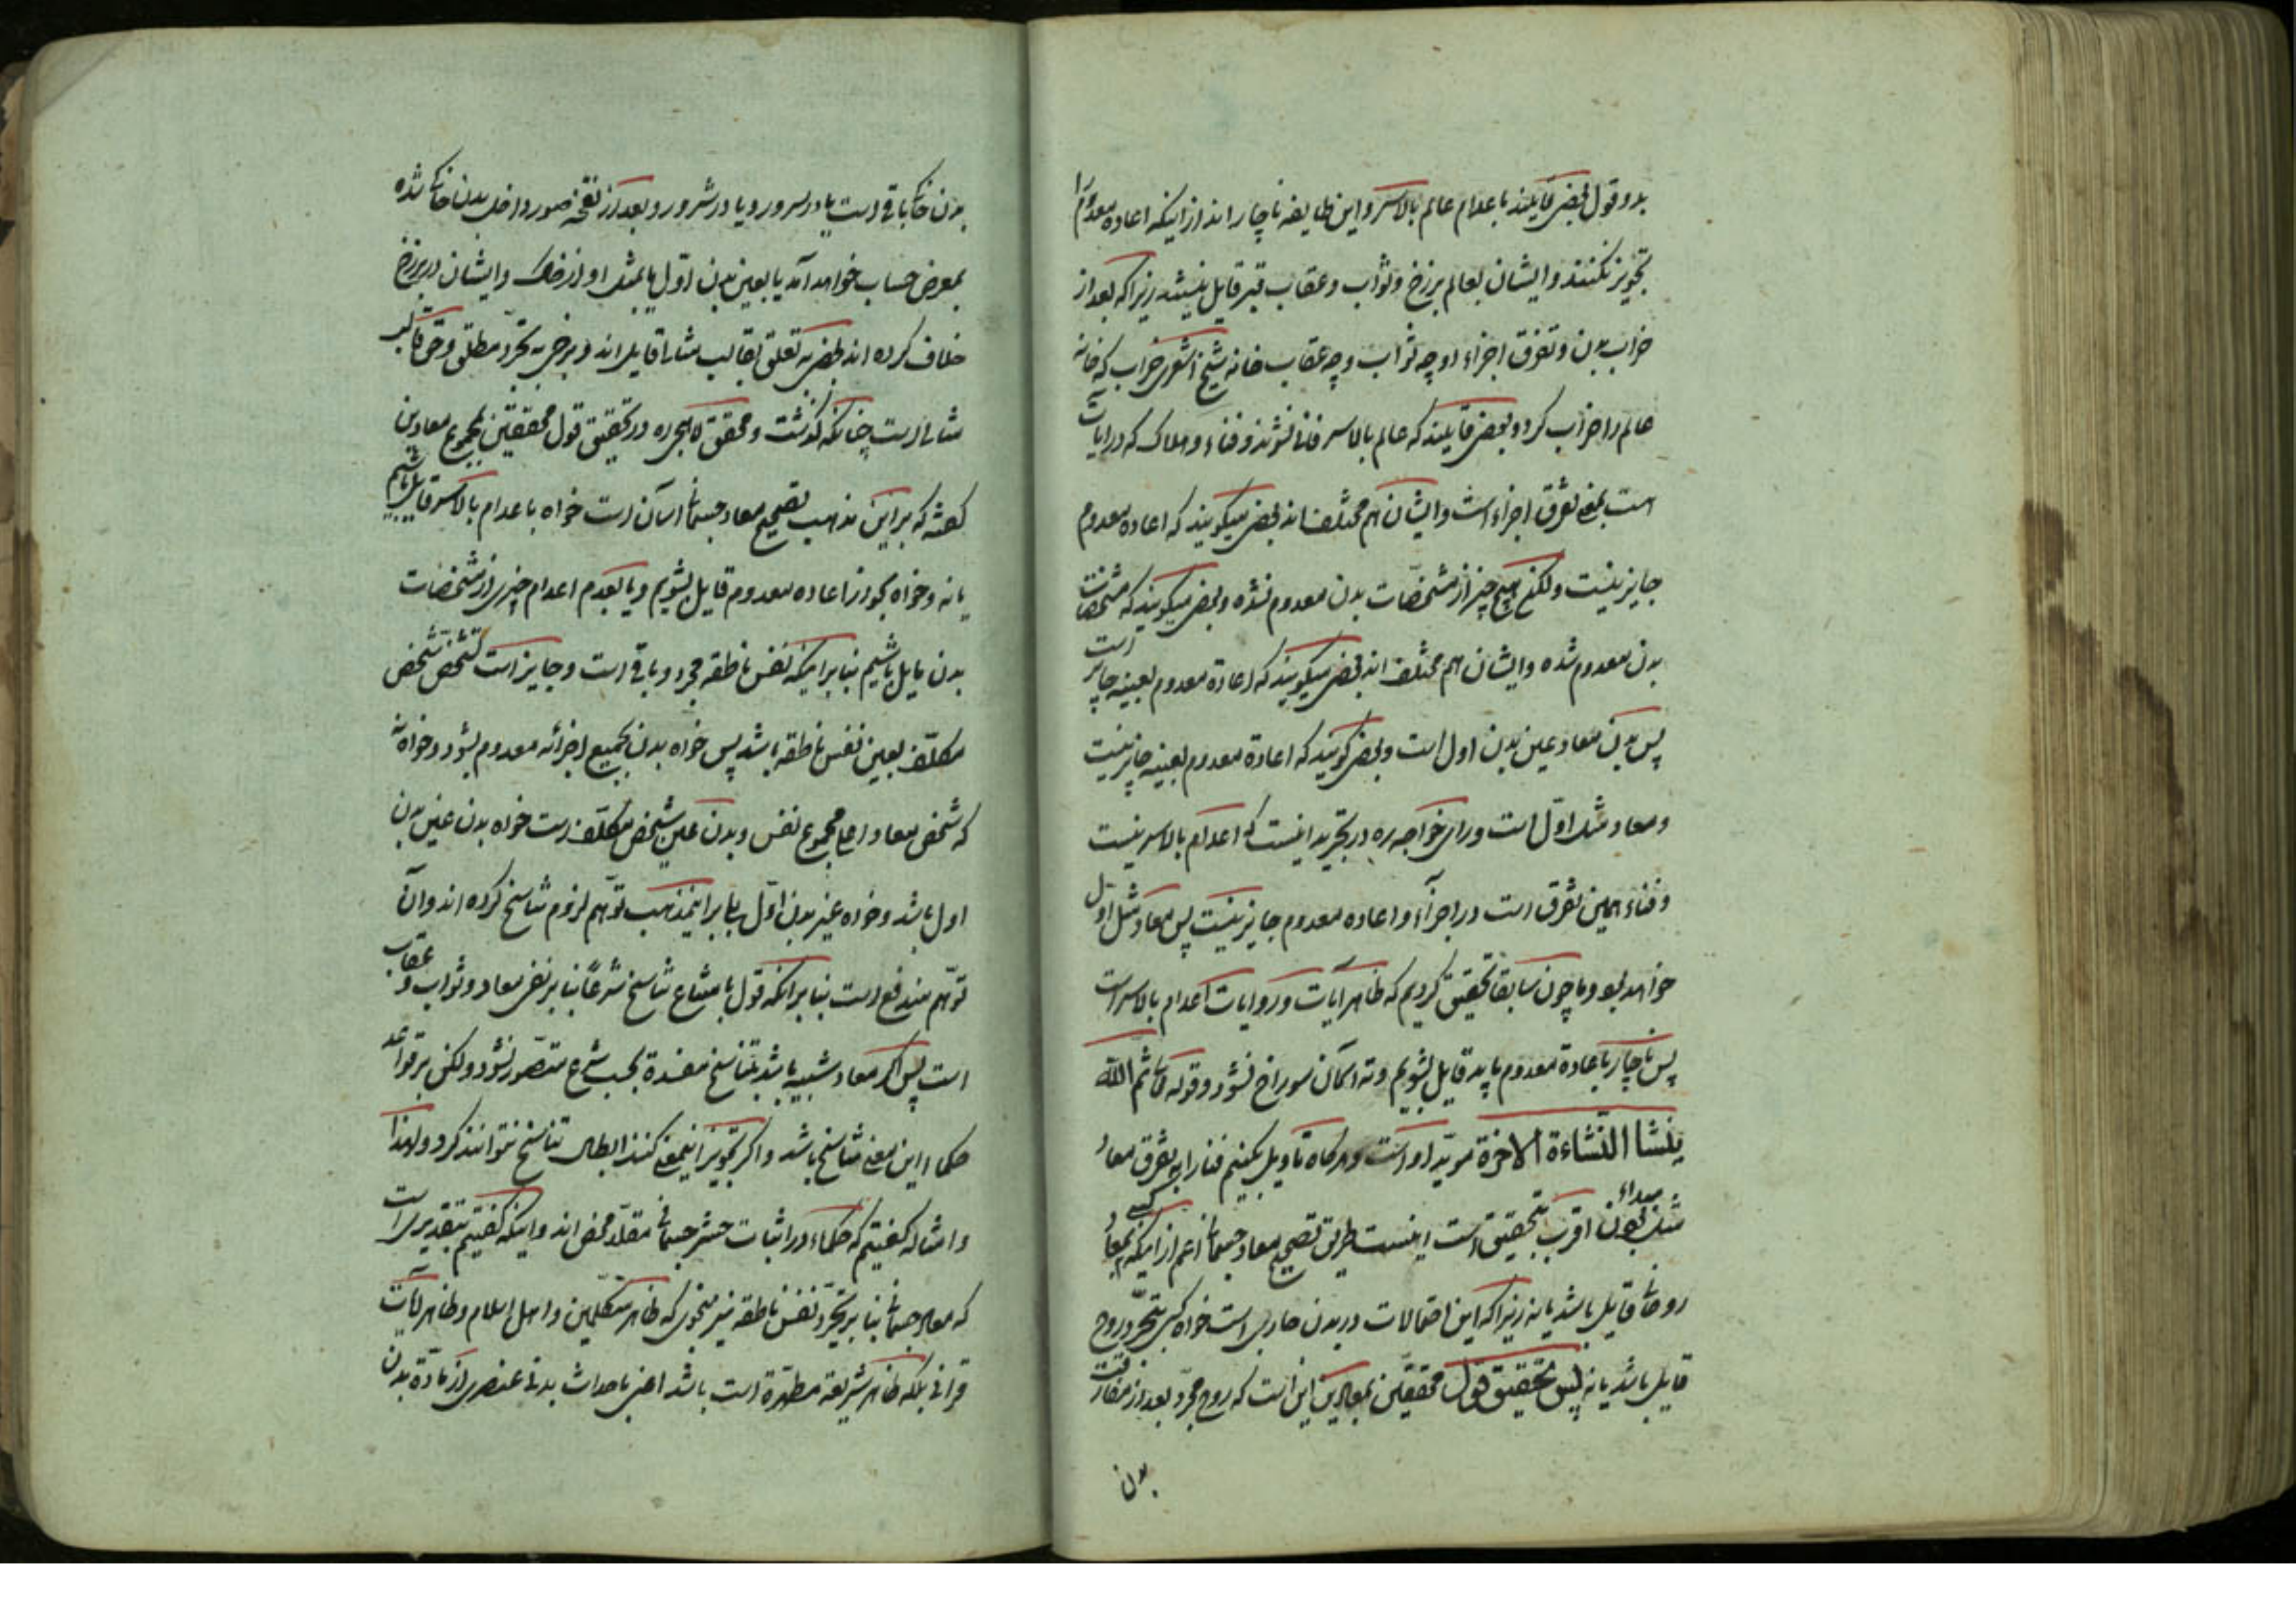 بدو قول بعضی قایلند باعدام عالم بالاسر و این طایفه ناچاراند از اینکه اعاده معدوم را
تجویز نکنند و ایشان بعالم برزخ و ثواب و عقاب قبر قایل نیستند زیرا که بعد از
خراب بدن و تفرق اجزاء او چه ثواب و چه عقاب خانه شیخ اشعری خراب که خانه
عالم را خراب کرد و بعضی قایلند که عالم بالاسر فانی نشوند و فناء و هلاک که در آیات
است بمعنی تفرق اجزاء است و ایشان هم مختلف اند بعضی میگویند که اعاده معدوم
جایز نیست ولکن هیچ چیز از مشخصات بدن معدوم نشده و بعضی میگویند که مشخصات
بدن معدوم شده و ایشان هم مختلف اند بعضی میگویند که اعادة معدوم بعینه جایز است
پس بدن معاد عین بدن اول است و بعضی گویند که اعادة معدوم بعینه جایز نیست
و معاد مثل اوّل است و رای خواجه ره در تجرید اینست که اعدام بالاسر نیست
و فناء همین تفرق است در اجزاء و اعاده معدوم جایز نیست پس معاد مثل اول
خواهد بود و ما چون سابقا تحقیق کردیم که ظاهر آیات و روایات اعدام بالاسر است
پس ناچار باعادة معدوم باید قایل بشویم و ته آسمان سوراخ نشود و قوله تعالی ثم الله
ینشا النشاءة الاخرة موید او است و هرگاه تاویل بکنیم فنا را به تفرق معاد
مثل مبداء بودن اقرب بتحقیق است اینست طریق تصحیح معاد جسمانی اعم از اینکه کسی بمعاد
روحانی قایل باشد یا نه زیرا که این احتمالات در بدن جاری است خواه کسی بتجرد روح
قایل باشد یا نه پس تحقیق قول محققین بمعادین این است که روح مجرد بعد از مفارقت
بدن
بدن خاکی باقی است یا در سرور و یا در شرور و بعد از نفخه صور داخل بدن خاکی شده
بمعرض حساب خواهد آمد یا بعین بدن اوّل یا بمثل او از خاک و ایشان در برزخ
خلاف کرده اند بعضی به تعلق بقالب مثالی قایل اند و برخی به تجرد مطلق و حق قالب
مثالی است چنانکه گذشت و محقق لاهیجی ره در تحقیق قول محققین بمجموع معادین
گفته که بر این مذهب تصحیح معاد جسمانی آسان است خواه باعدام بالاسر قایل باشیم
یا نه و خواه بجواز اعاده معدوم قایل بشویم و یا بعدم اعدام چیزی از مشخصات
بدن قایل باشیم بنا بر اینکه نفس ناطقه مجرد و باقی است و جایز است تشخص شخص
مکلّف بعین نفس ناطقه باشد پس خواه بدن بجمیع اجزائه معدوم بشود و خواه نه
که شخص معاد اعنی مجموع نفس و بدن عین شخص مکلّف است خواه بدن عین بدن
اول باشد و خواه غیر بدن اوّل بلی بر اینمذهب توّهم لزوم تناسخ کرده اند و آن
توّهم مندفع است بنا بر آنکه قول بامتناع تناسخ شرعاً بنا بر نفی معاد و ثواب و عقاب
است پس اگر معاد شبیه باشد بتناسخ مفسدة بحسب شرع متصور نشود ولکن بر قواعد
حکماء این معنی تناسخ باشد و اگر تجویز اینمعنی کنند ابطال تناسخ نتوانند کرد و لهذا
و امثاله گفتیم که حکماء در اثبات حشر جسمانی مقلد محض اند و اینکه گفتیم بتقدیری است
که معاد جسمانی بنا بر تجرد نفس ناطقه نیز بنحوی که ظاهر متکلّمین و اهل اسلام و ظاهر آیات
قرآنی بلکه ظاهر شریعة مطهّرة است باشد اعنی باحداث بدنی عنصری از مادّة بدن